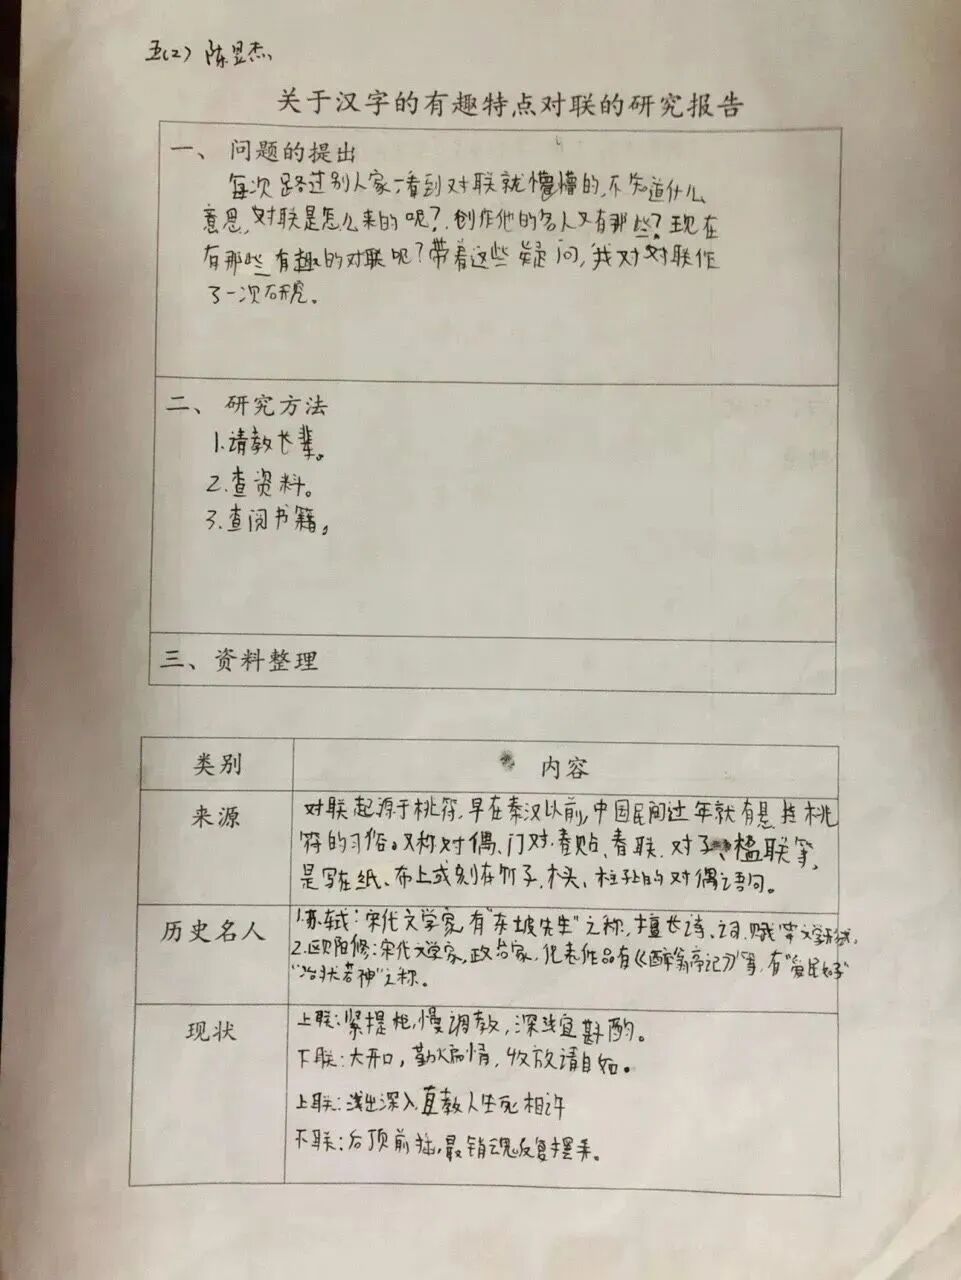 五(2) 陈昱杰
关于汉字的有趣特点对联的研究报告
一、 问题的提出
每次路过别人家,看到对联就懵懵的,不知道什么
意思,对联是怎么来的呢?创作他的名人又有那些?现在
有那些有趣的对联呢?带着这些疑问,我对对联作
了一次研究。
二、 研究方法
1.请教长辈。
2.查资料。
3.查阅书籍,
三、资料整理
类别 内容
来源
对联起源于桃符,早在秦汉以前,中国民间过年就有悬挂桃
符的习俗。又称对偶、门对、春贴、春联、对子、楹联等,
是写在纸、布上或刻在竹子、木头、柱子上的对偶语句。
历史名人
1.苏轼:宋代文学家,有"东坡先生"之称,擅长诗、词、赋等文学形式,
2.欧阳修:宋代文学家,政治家,代表作品有《醉翁亭记》等,有"爱民如子"
"治状若神"之称。
现状
上联:紧提枪,慢调教,深浅宜斟酌。
下联:大开口,勤煽情,收放请自如。
上联:浅出深入,直教人生死相许
下联:后顶前抽,最销魂反复摆弄。